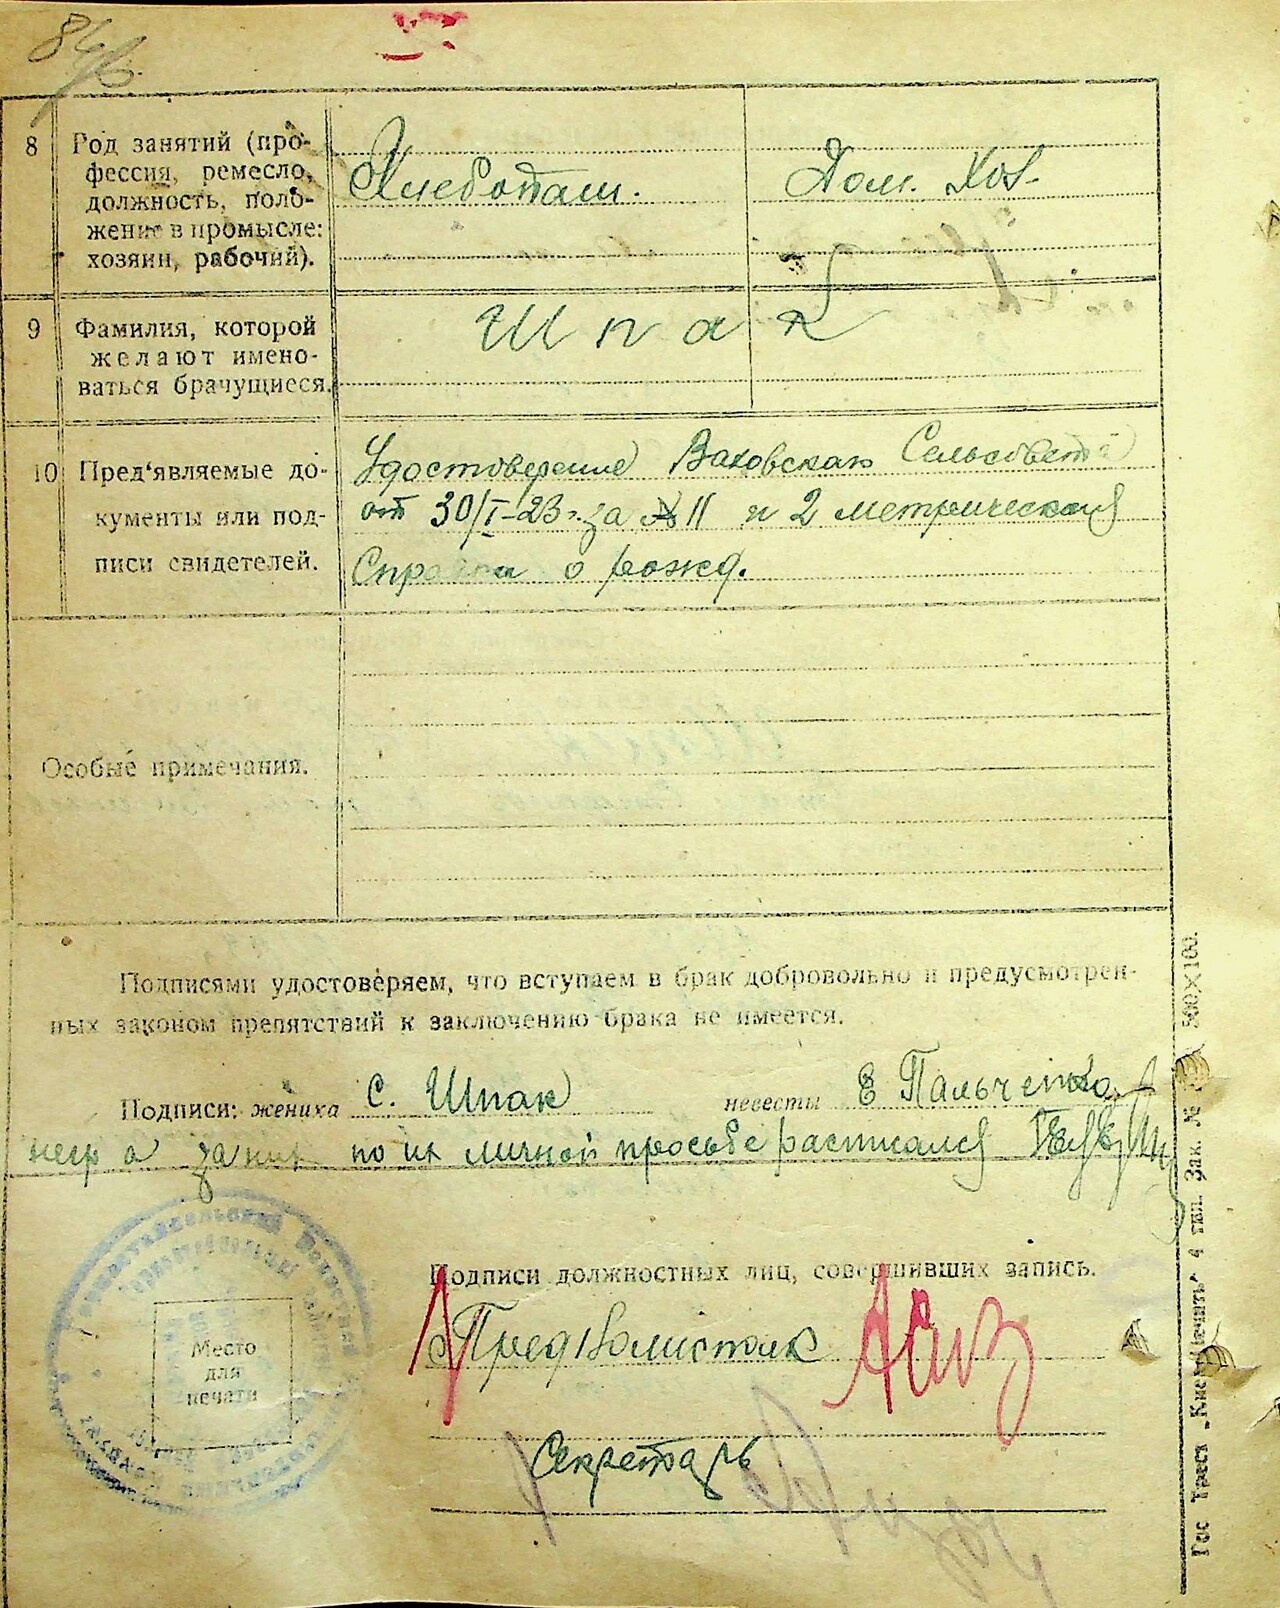 84б.
8 Род занятий (про-
фессия, ремесло,
должность, поло-
жение в промысле:
хозяин, рабочий).
Хлебопаш.
Дом. Хоз.
9 Фамилия, которой
желают имено-
ваться брачущиеся.
Шпак
10 Пред'являемые до-
кументы или под-
писи свидетелей.
Удостоверение Ваховская Сельсовета
от 30/I-23 г. за № 11 и 2 метрическая
Справки о рожд.
Особые примечания.
Подписями удостоверяем, что вступаем в брак добровольно и предусмотрен-
ных законом препятствий к заключению брака не имеется.
Подписи: жениха С. Шпак невесты Е Пальченко
негр а за них по их личной просьбе расписался
Подписи должностных лиц, совершивших запись.
Предволисполк
Секретарь
Место
для
печати
Гос Трест „Киев-Печать“ 4 тип. Зак. № 500×100.